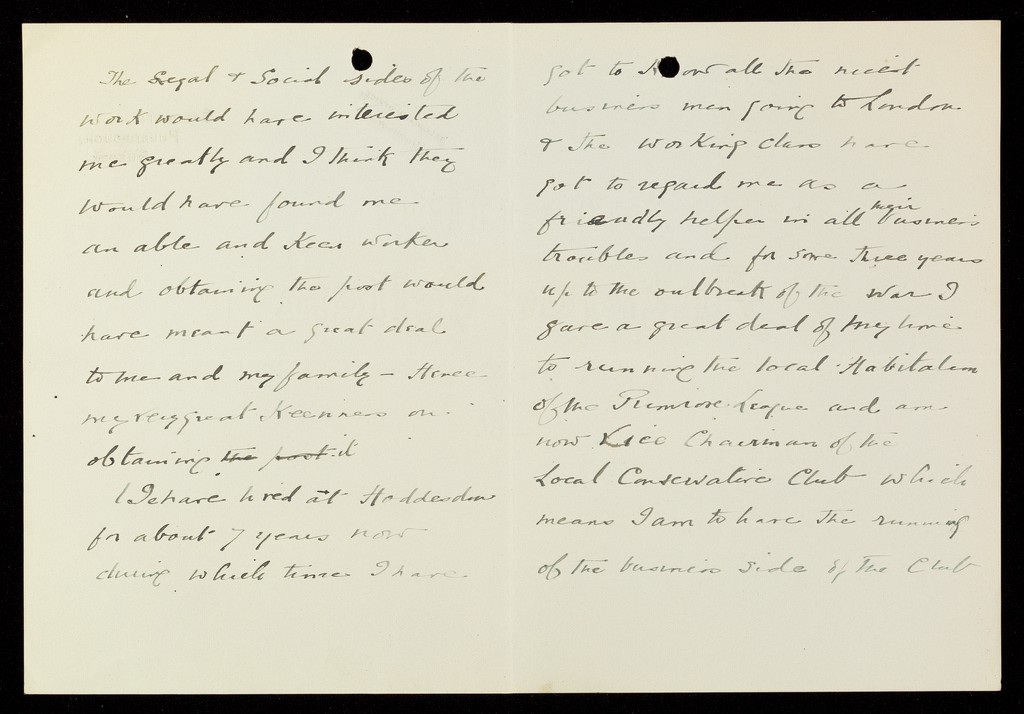 The Legal & Social sides of the
work would have interested
me greatly and I think they
would have found me
an able and keen worker
and obtaining the post would
have meant a great deal
to me and my family – Hence
my very great keenness on
obtaining the post it
I have lived at Hoddesdon
for about 7 years now
during which time I have
got to know all the nicest
business men going to London
& the working class have
got to regard me as a
friendly helper in all their business
troubles and for some three years
up to the outbreak of the war I
gave a great deal of my time
to running the local Habitation
of the Primrose League and am
now Vice Chairman of the
Local Conservative Club which
means I am to have the running
of the business side of the Club